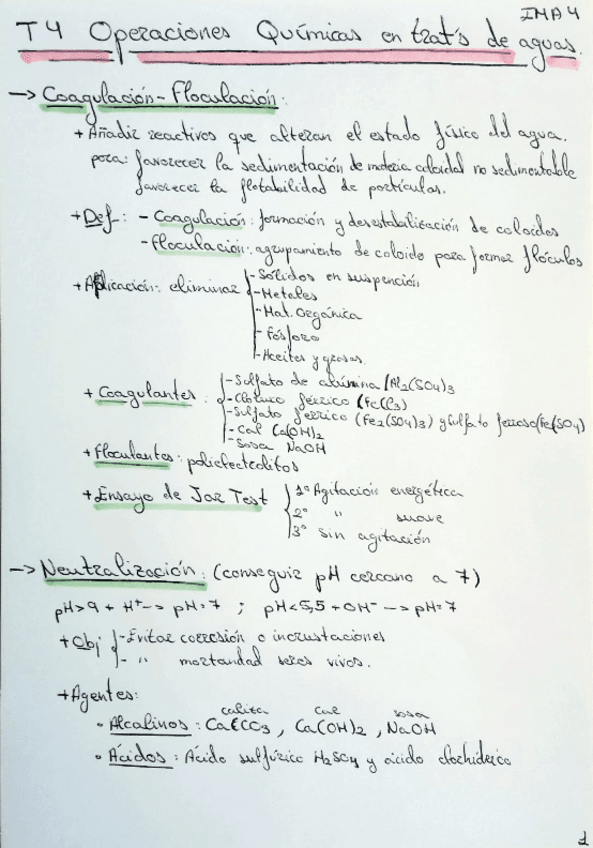 IMA4
T4 Operaciones Químicas en trat's de aguas.
→ Coagulación-Floculación:
+ Añadir reactivos que alteran el estado físico del agua.
para: favorecer la sedimentación de materia coloidal no sedimentable
favorecer la flotabilidad de partículas.
+ Def: - Coagulación: formación y desestabilización de coloides
- Floculación: agrupamiento de coloide para formar flóculos
+ Aplicación: eliminar - Sólidos en suspención
- Metales
- Mat. Orgánica
- Fósforo
- Aceites y grasas.
+ Coagulantes: - Sulfato de alúmina (Al₂(SO₄)₃
- Cloruro férrico (FeCl₃)
- Sulfato férrico (Fe₂(SO₄)₃) y sulfato ferroso (Fe(SO₄)
- Cal Ca(OH)₂
- Sosa NaOH
+ Floculantes: polielectrolitos
+ Ensayo de Jar Test 1º Agitación energética
2º " suave
3º Sin agitación
→ Neutralización: (conseguir pH cercano a 7)
pH>9 + H⁺ --> pH=7 ; pH<5,5 + OH⁻ --> pH=7
+ Obj - Evitar corrosión o incrustaciones
- " mortandad seres vivos.
+ Agentes:
calita cal sosa
• Alcalinos: CaCO₃, Ca(OH)₂, NaOH
• Ácidos: Ácido sulfúrico H₂SO₄ y ácido clorhídrico
1